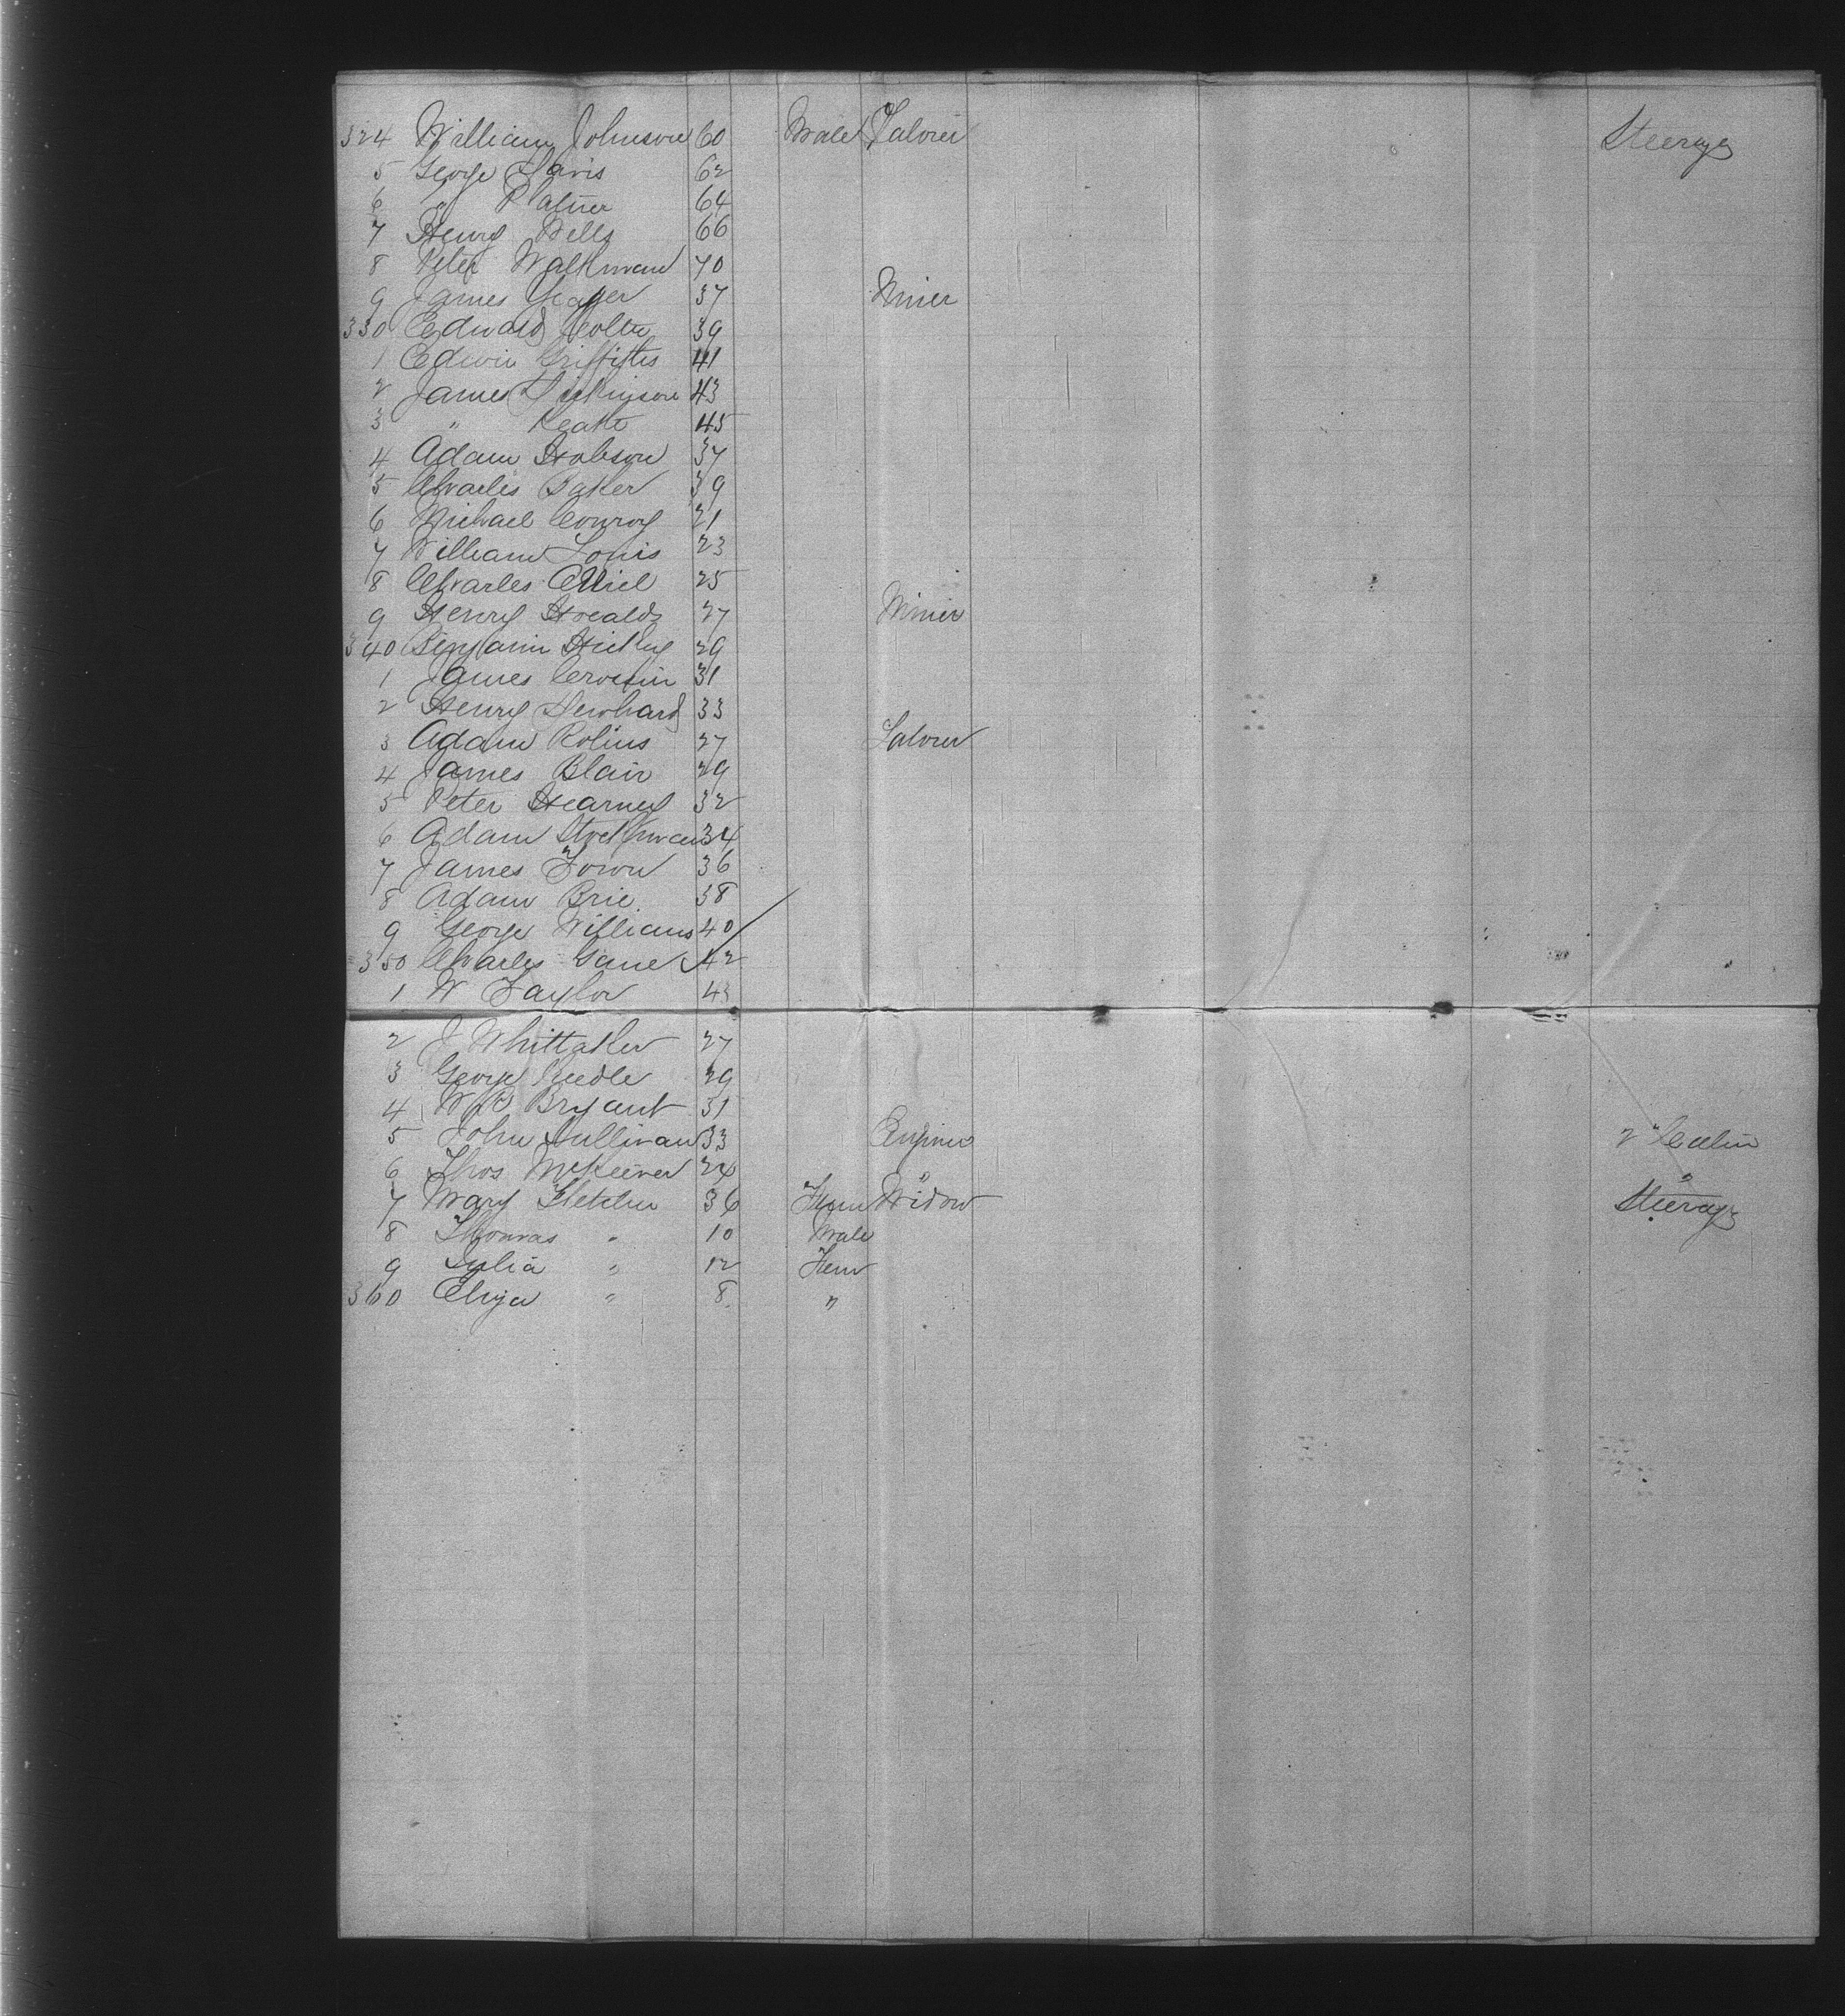 324 William Johnson 60 Male Laborer Steerage
5 George Davis 62
6 " Platner 64
7 Henry Wells 66
8 Peter Walkman 70
9 James Yeager 37 Miner
330 Edward 39
1 Edwin Griffiths 41
2 James Dickinson 43
3 " Keath 45
4 Adam Hobson 37
5 Charles Baker 39
6 Michael Conroy 21
7 William Louis 23
8 Charles 25
9 Henry 27 Miner
340 Benjamin 29
1 James 31
2 Henry 33
3 Adam Rolins 27 Laborer
4 James Blair 29
5 Peter Kearney 32
6 Adam Stockman 34
7 James Town 36
8 Adam Brie 38
9 George Williams 40
350 Charles Gane 42
1 W Taylor 43
2 J Whittaker 27
3 George 29
4 W R Bryant 31
5 John Sullivan 33 Engineer 2" Cabin
6 Thos McKeever 24 " "
7 Mary Fletcher 36 Fem Widow Steerage
8 Thomas " 10 Male
9 Julia " 12 Fem
360 Eliza " 8 "